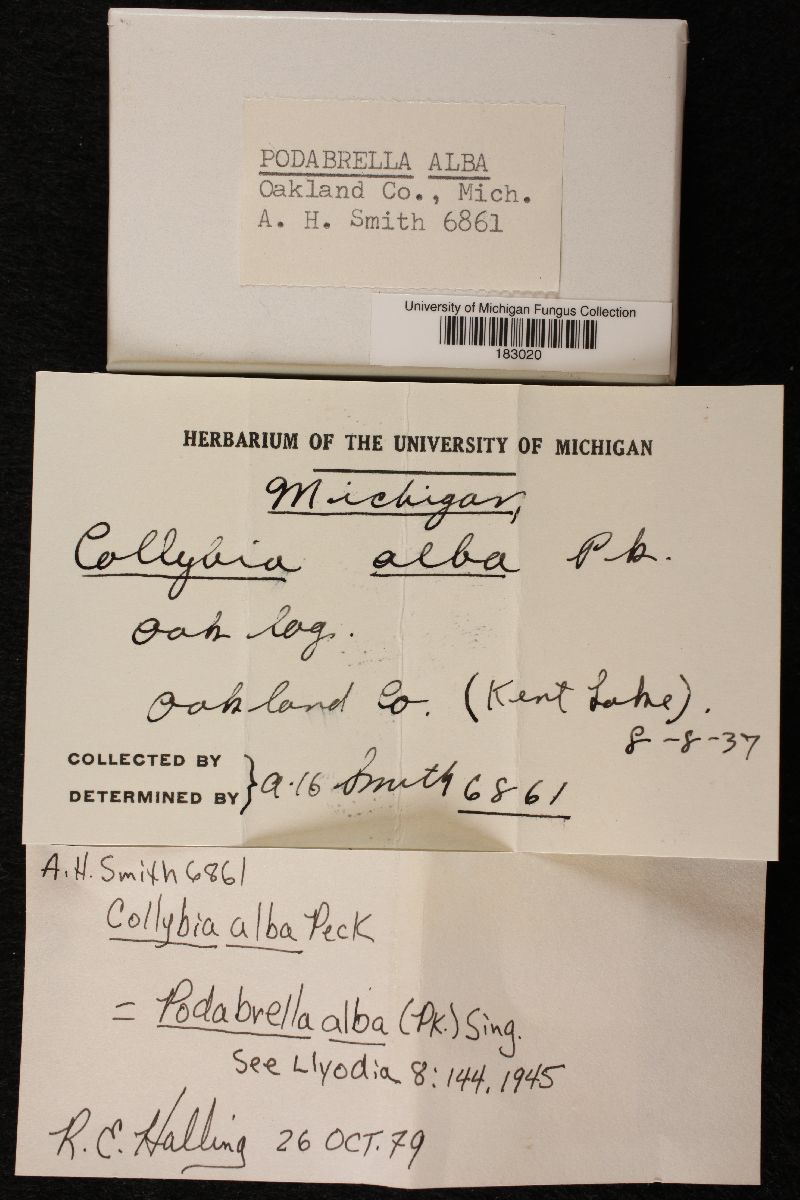 PODABRELLA ALBA
Oakland Co., Mich.
A. H. Smith 6861
University of Michigan Fungus Collection
183020
HERBARIUM OF THE UNIVERSITY OF MICHIGAN
Michigan,
Collybia alba Pk.
oak log.
Oakland Co. (Kent Lake).
8-8-37
COLLECTED BY
DETERMINED BY } A. H. Smith 6861
A.H. Smith 6861
Collybia alba Peck
= Podabrella alba (Pk.) Sing.
See Llyodia 8:144, 1945
R. E. Halling 26 OCT. 79